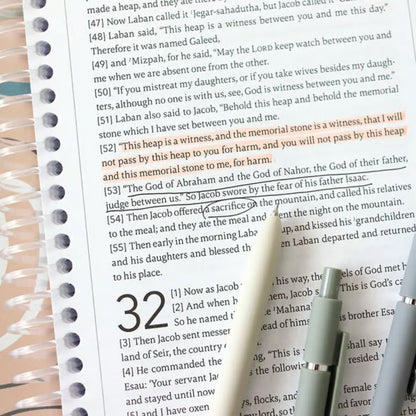 made a heap, and they ate there by
[47] Now Laban called it ʲJegar-sahadutha, but Jacob called it
[48] Laban said, "This heap is a witness between you and me this day."
Therefore it was named Galeed.
[49] and ʲMizpah, for he said, "May the LORD keep watch between you and
me when we are absent one from the other.
[50] "If you mistreat my daughters, or if you take wives besides my daugh-
ters, although no one is with us, see, God is witness between you and me."
[51] Laban also said to Jacob, "Behold this heap and behold the memorial
stone which I have set between you and me.
[52] "This heap is a witness, and the memorial stone is a witness, that I will
not pass by this heap to you for harm, and you will not pass by this heap
and this memorial stone to me, for harm.
[53] "The God of Abraham and the God of Nahor, the God of their father,
judge between us." So Jacob swore by the fear of his father Isaac.
[54] Then Jacob offered a sacrifice on the mountain, and called his relatives
to the meal; and they ate the meal and spent the night on the mountain.
[55] Then early in the morning Laban up, and kissed his ˡgrandchildren
and his daughters and blessed Laban departed and returned
to his place.
32
[1] Now as Jacob his way, the of God met
[2] And when he them, Jacob "This is God's
So he named ᵐMahana
[3] Then Jacob sent messen head of him his brother Esau
land of Seir, the country
[4] He commanded the saying, "This shall say
Esau: 'Your servant resided
and stayed until now
[5] and I have oxen flocks, and and female
my lord,